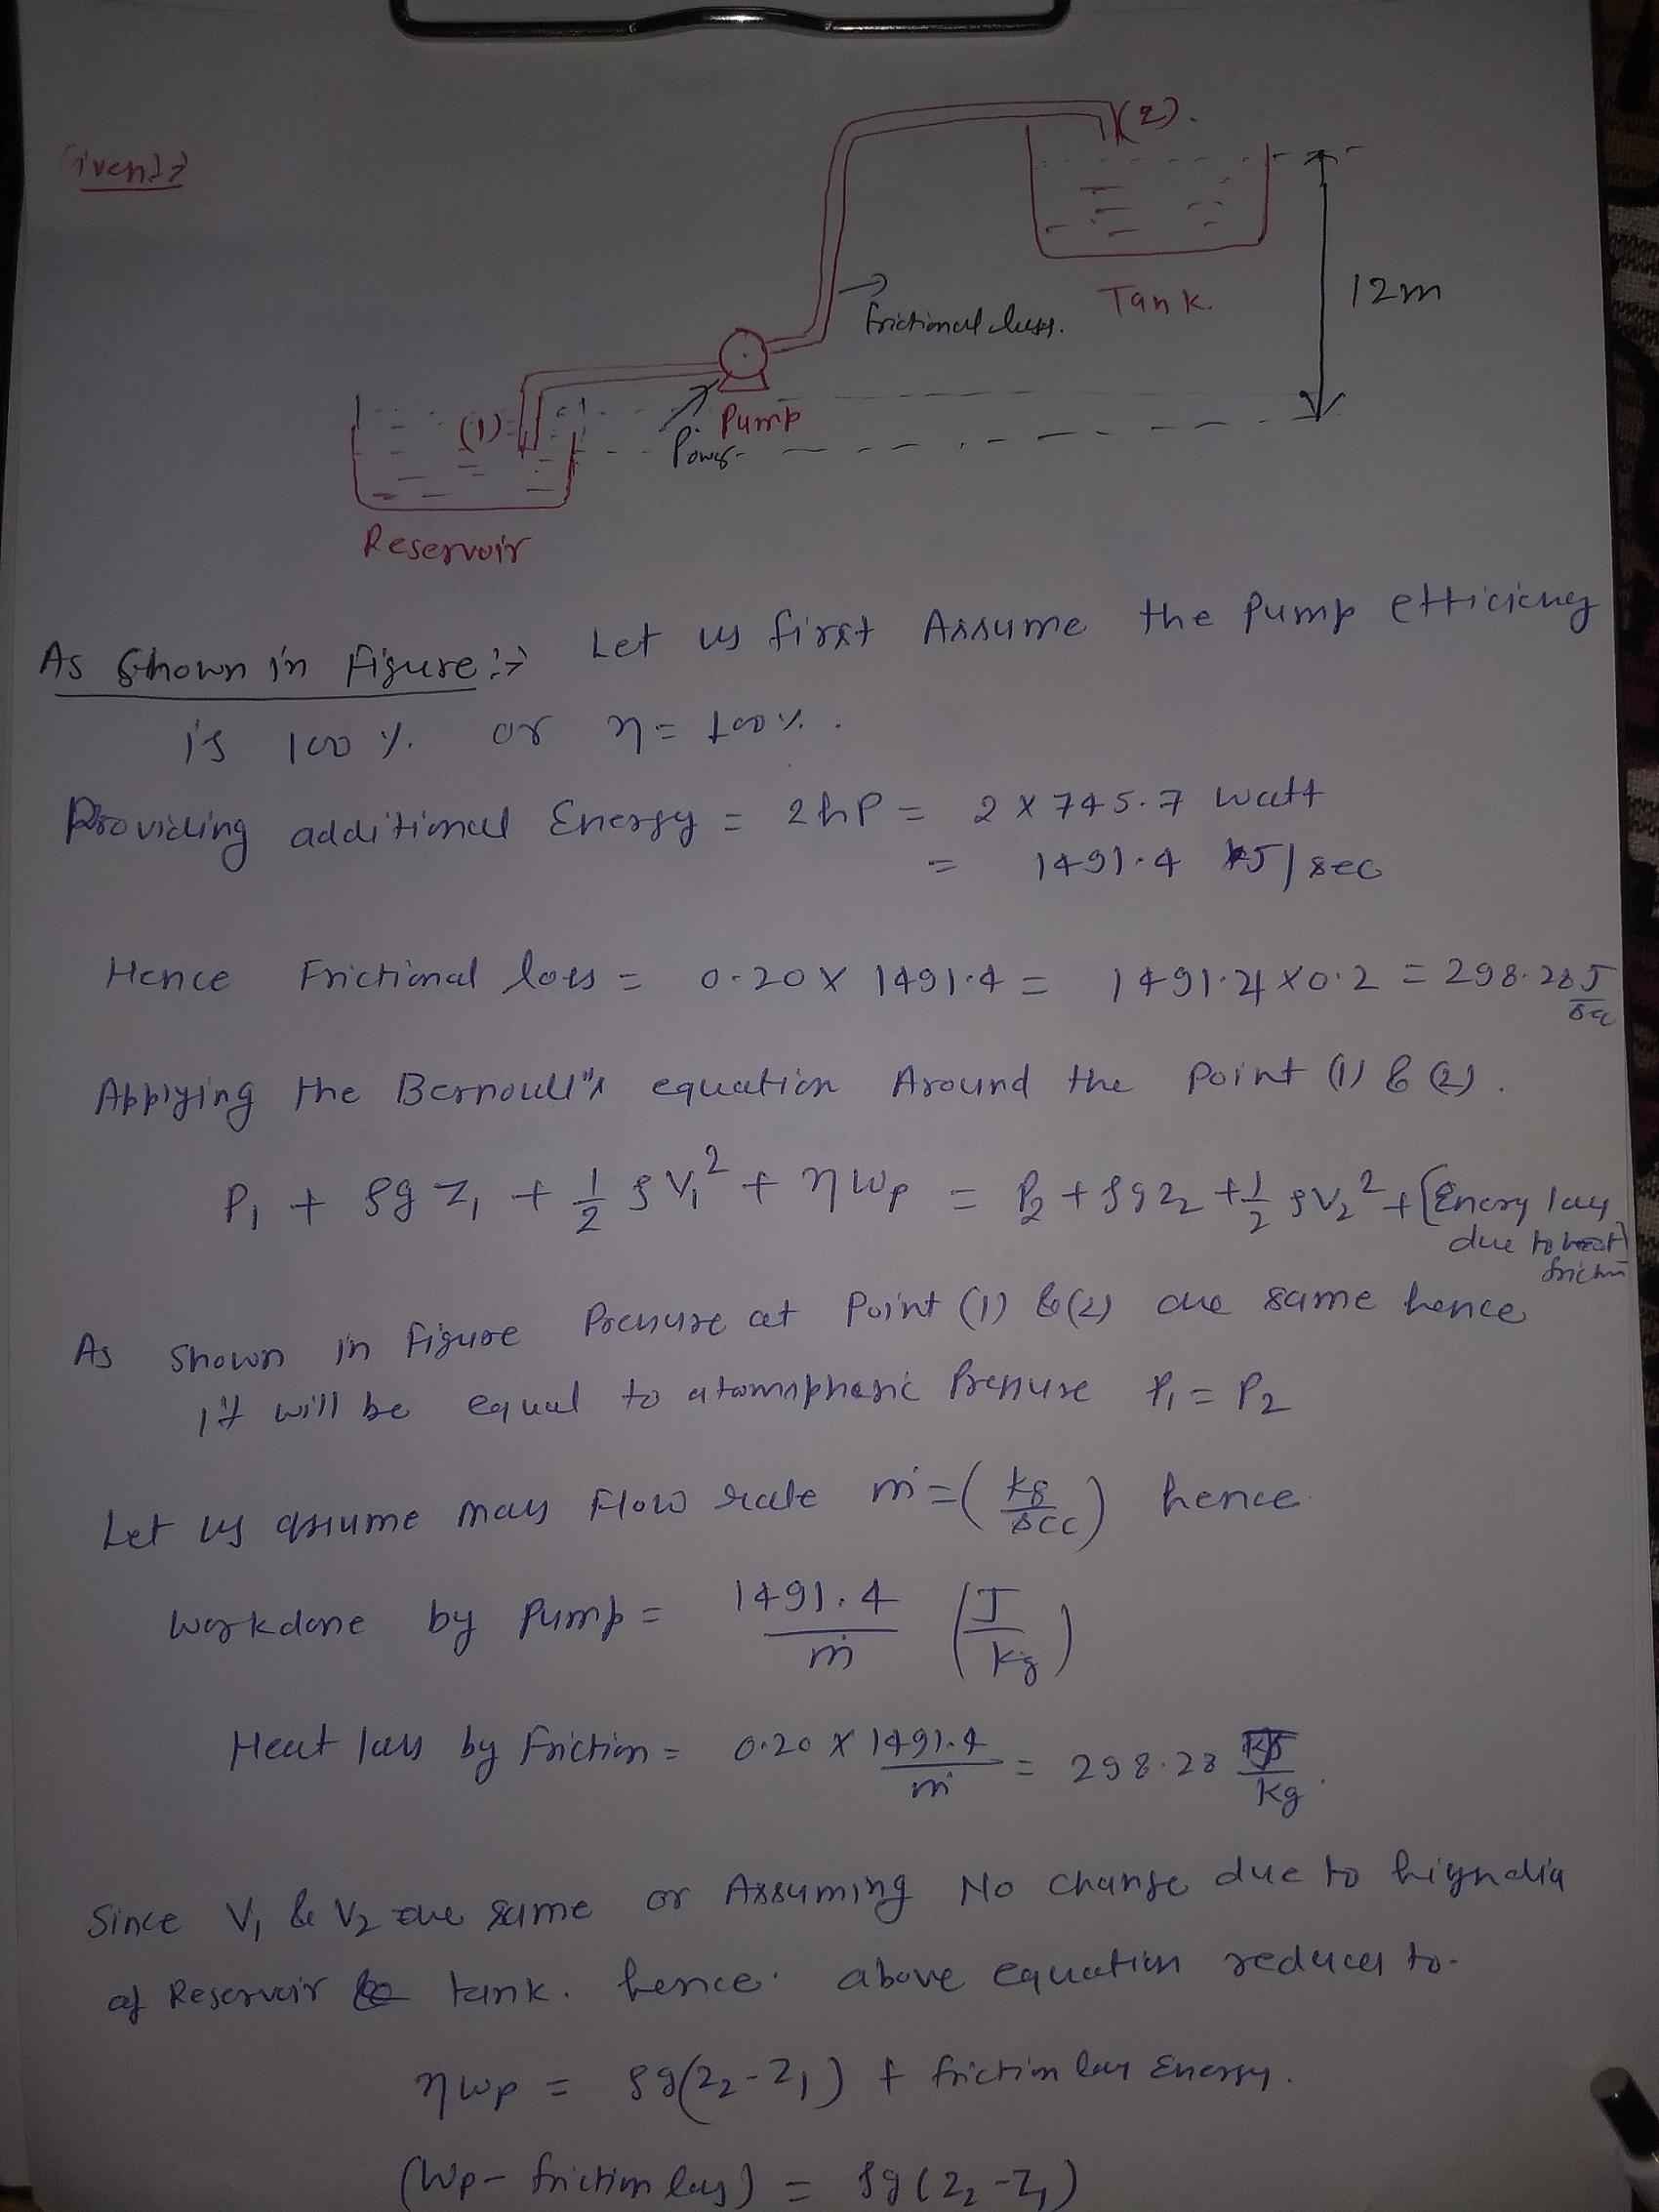 Given :→
(2).
12m
Tank.
Frictional loss.
(1)
Pump
Power
Reservoir
As Shown in Figure :→ Let us first Assume the Pump efficiency
is 100 %. or η = 100%.
Providing additional Energy = 2hP = 2 x 745.7 watt
= 1491.4 J/sec
Hence Frictional loss = 0.20 x 1491.4 = 1491.4 x 0.2 = 298.28 J/sec
Applying the Bernoulli's equation Around the Point (1) & (2).
P₁ + ρg z₁ + 1/2 ρ V₁² + η Wp = P₂ + ρg z₂ + 1/2 ρV₂² + [Energy loss
due to
friction]
As shown in Figure Pressure at Point (1) & (2) are same hence
it will be equal to atomspheric Pressure P₁ = P₂
Let us assume mass Flow rate ṁ = (kg/sec) hence
workdone by Pump = 1491.4/ṁ (J/kg)
Heat loss by Friction = 0.20 x 1491.4/ṁ = 298.28 J/kg.
Since V₁ & V₂ are same or Assuming No change due to high dia
of Reservoir & tank. hence above equation reduces to-
ηWp = ρg(z₂-z₁) + friction loss Energy.
(Wp - friction loss) = ρg(z₂-z₁)